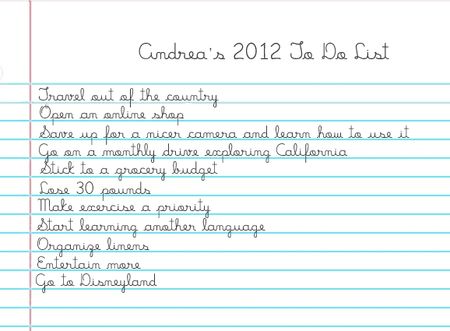 Andrea's 2012 To Do List
Travel out of the country
Open an online shop
Save up for a nicer camera and learn how to use it
Go on a monthly drive exploring California
Stick to a grocery budget
Lose 30 pounds
Make exercise a priority
Start learning another language
Organize linens
Entertain more
Go to Disneyland